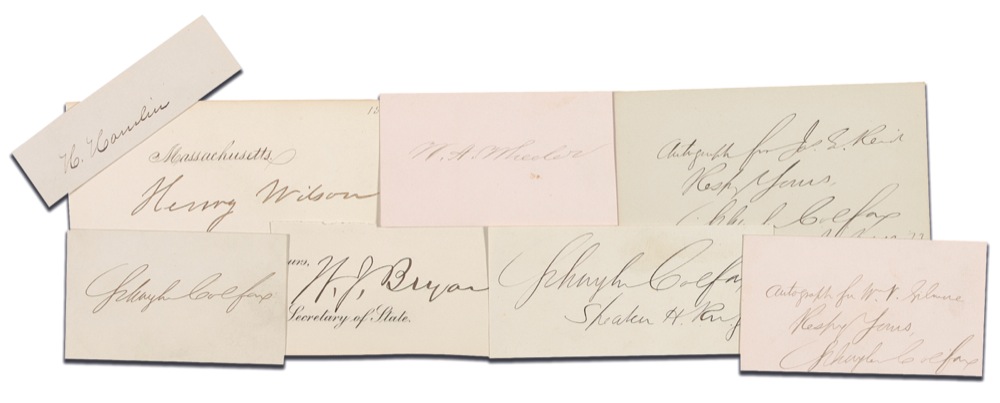 H. Hamlin
Massachusetts.
Henry Wilson
W. A. Wheeler
Autograph for Jas. E. Reid
Respy Yours,
Schuyler Colfax
Schuyler Colfax
urs,
W. J. Bryan
Secretary of State.
Schuyler Colfax
Speaker H. Rep
Autograph for W. V. Gilmore
Respy Yours,
Schuyler Colfax